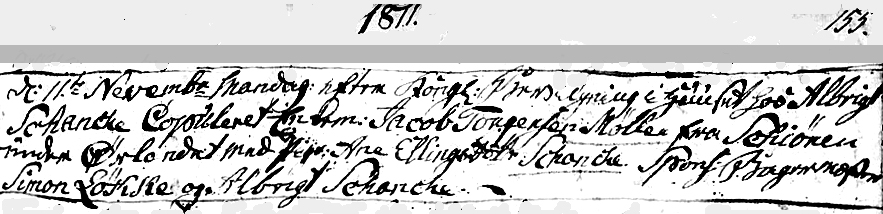 1811. 155.
d: 11te Novembr Mandag efter Kongl: Bevilgning i Huuset hos Albrigt
Schancke Copuleret Jacob Torgersen Møller fra Schiönen
under Ørlandet med Pige: Ane Ellingsdtr Schancke Spons
Simon Løchke og Albrigt Schancke.